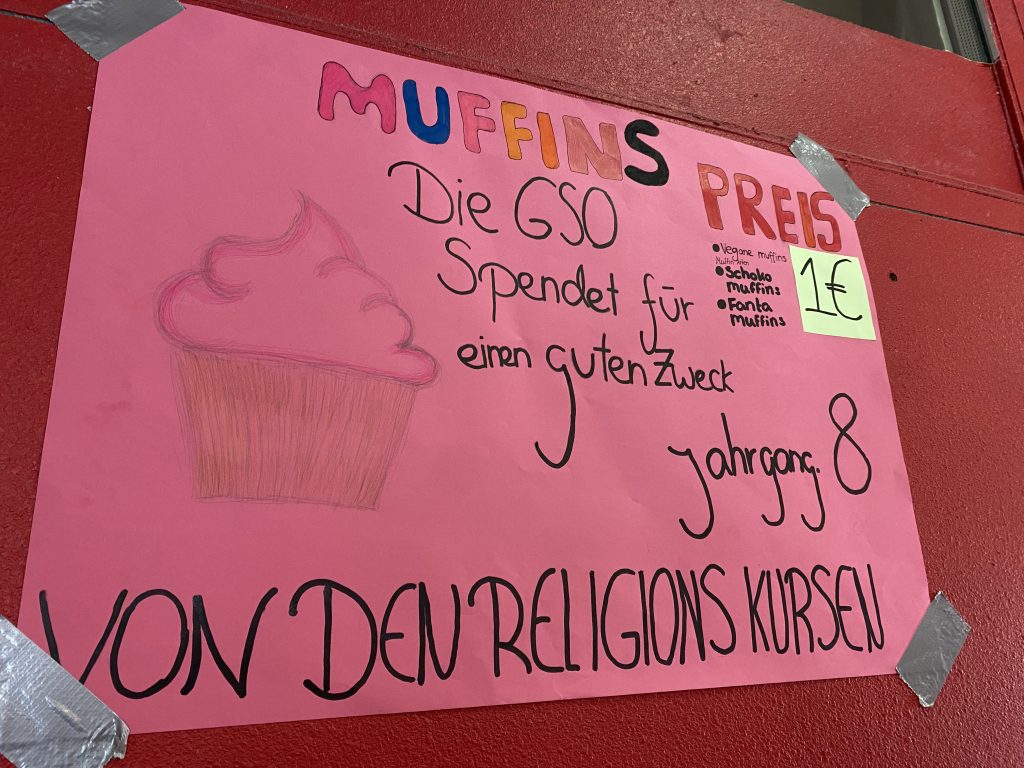 MUFFINS
Die GSO
Spendet für
einen guten Zweck
Jahrgang. 8
PREIS
Vegane muffins
Muffin Arten
Schoko
muffins
Fanta
muffins
1€
VON DEN RELIGIONS KURSEN